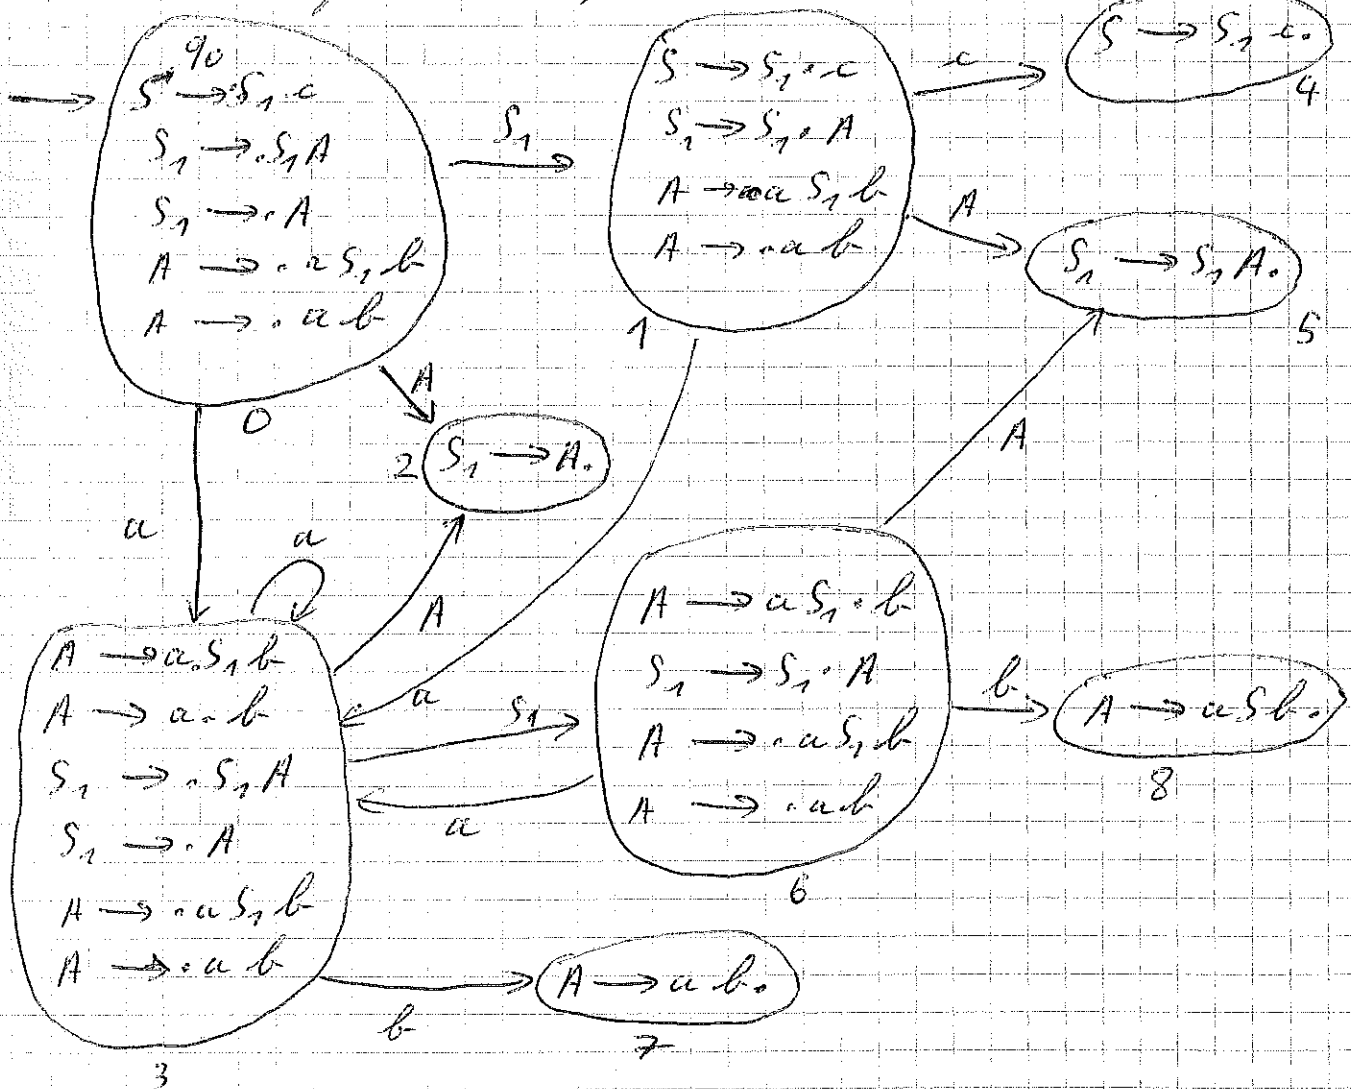 q₀
S → .S₁ c
S₁ → .S₁A
S₁ → .A
A → .a S₁ b
A → .a b
0
S₁
S → S₁ . c
S₁ → S₁ . A
A → .a S₁ b
A → .a b
1
c
S → S₁ c.
4
A
S₁ → S₁ A.
5
A
2
S₁ → A.
a
a
A
a
A
A → a.S₁ b
A → a . b
S₁ → .S₁ A
S₁ → .A
A → .a S₁ b
A → .a b
3
S₁
a
A → a S₁ . b
S₁ → S₁ . A
A → .a S₁ b
A → .a b
6
b
A → a S b.
8
b
A → a b.
7